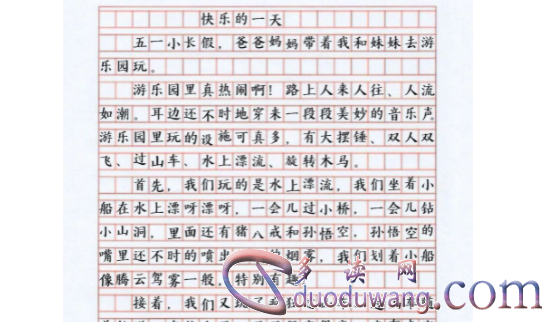 快乐的一天
五一小长假，爸爸妈妈带着我和妹妹去游
乐园玩。
游乐园里真热闹啊！路上人来人往、人流
如潮。耳边还不时地穿来一段段美妙的音乐声
游乐园里玩的设施可真多，有大摆锤、双人双
飞、过山车、水上漂流、旋转木马。
首先，我们玩的是水上漂流，我们坐着小
船在水上漂呀漂呀，一会儿过小桥，一会儿钻
小山洞，里面还有猪八戒和孙悟空，孙悟空的
嘴里还不时的喷出的烟雾，我们划着小船
像腾云驾雾一般，特别有趣
接着，我们又玩了
多读网
duoduwang.com